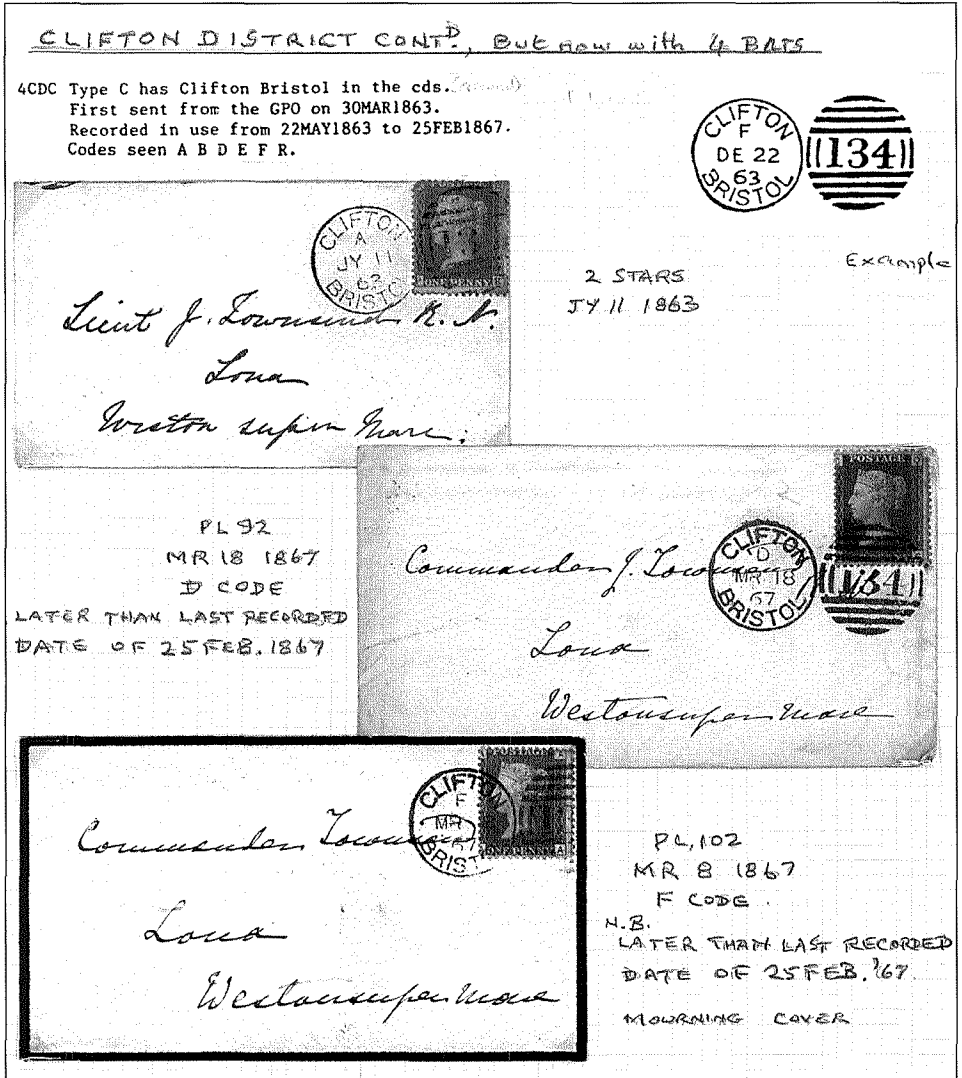 CLIFTON DISTRICT CONTD., But now with 4 BARS
4CDC Type C has Clifton Bristol in the cds.
First sent from the GPO on 30MAR1863.
Recorded in use from 22MAY1863 to 25FEB1867.
Codes seen A B D E F R.
CLIFTON
F
DE 22
63
BRISTOL
134
Example
CLIFTON
A
JY 11
63
BRISTOL
ONE PENNY
2 STARS
JY 11 1863
Lieut J. Townsend R. N.
Lona
Weston super Mare.
POSTAGE
CLIFTON
D
MR 18
67
BRISTOL
134
PL 92
MR 18 1867
D CODE
LATER THAN LAST RECORDED
DATE OF 25 FEB. 1867
Commander J. Townsend
Lona
Westonsupermare
CLIFTON
F
MR
67
BRIST
Commander Townsend
Lona
Westonsupermare
PL, 102
MR 8 1867
F CODE.
N.B.
LATER THAN LAST RECORDED
DATE OF 25 FEB. '67.
MOURNING COVER